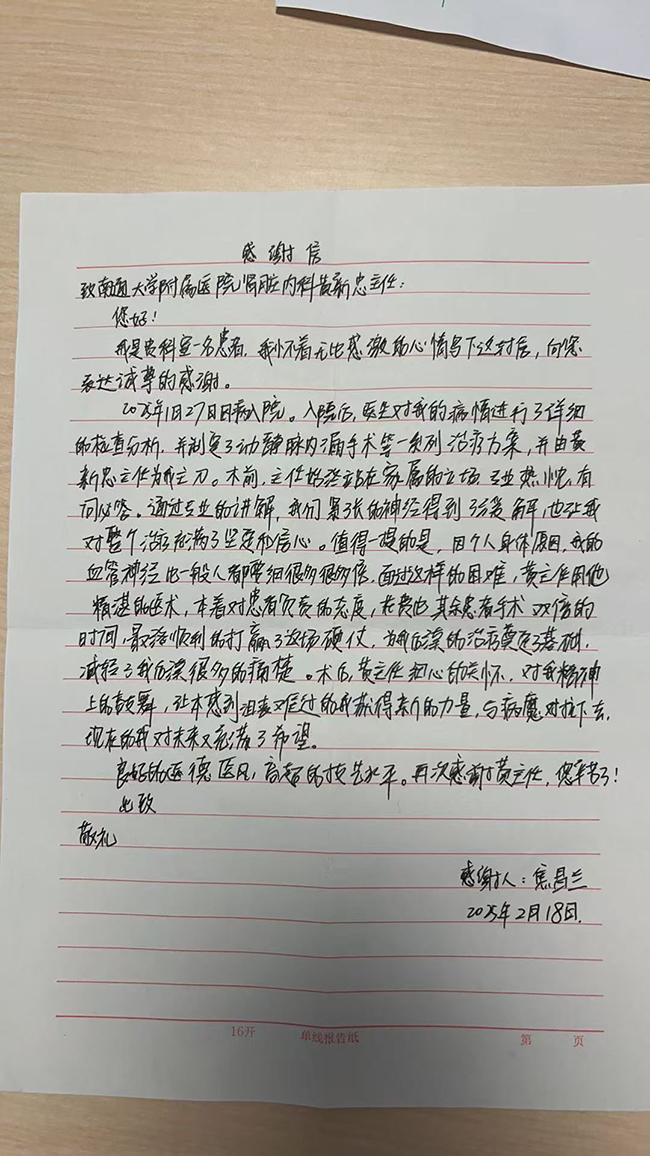 感谢信
致南通大学附属医院肾脏内科黄新忠主任：
您好！
我是贵科室一名患者，我怀着无比感激的心情写下这封信，向您
表达诚挚的感谢。
2025年1月27日我入院。入院后，医生对我的病情进行了详细
的检查分析，并制定了动静脉内瘘手术等一系列治疗方案，并由黄
新忠主任为我主刀。术前，主任始终站在家属的立场，专业热忱，有
问必答。通过专业的讲解，我们紧张的神经得到了缓解，也让我
对整个治疗充满了坚定和信心。值得一提的是，因个人身体原因，我的
血管神经比一般人都要细很多很多倍，面过这样的困难，黄主任用他
精湛的医术，本着对患者负责的态度，花费也其余患者手术双倍的
时间，最终顺利的打赢了这场硬仗，为我后续的治疗奠定了基础，
减轻了我后续很多的痛楚。术后，黄主任细心的关怀，对我精神
上的鼓舞，让本感到沮丧又难过的我获得新的力量，与病魔对抗下去，
现在的我对未来又充满了希望。
良好的医德医风，高超的技术水平。再次感谢黄主任，您辛苦了！
此致
敬礼
感谢人：焦昌兰
2025年2月18日.
16开 单线报告纸 第 页